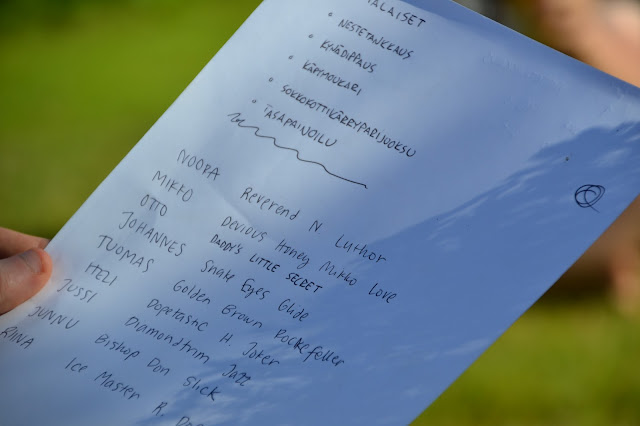 ALAISET
• NESTETANKKAUS
• KYNÄDIPPAUS
• KÄPYMOUKARI
• SOKKOKOTTIKÄRRYPARIJUOKSU
• TASAPAINOILU
NOORA Reverend N Luthor
MIKKO Devious Hiney Mikko Love
OTTO DADDY'S LITTLE SECRET
JOHANNES Snake Eyes Glide
TUOMAS Golden Brown Rockefeller
HELI Dopetastic H. Joker
JUSSI Diamondtrim Jazz
JUNNU Bishop Don Slick
RIINA Ice Master R.